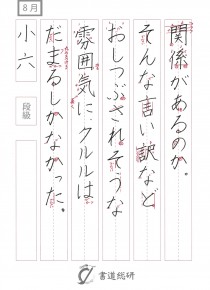 8月
関係があるのか。
そんな言い訳など
おしつぶされそうな
雰囲気に、クルルは
だまるしかなかった。
小六
段級
書道総研